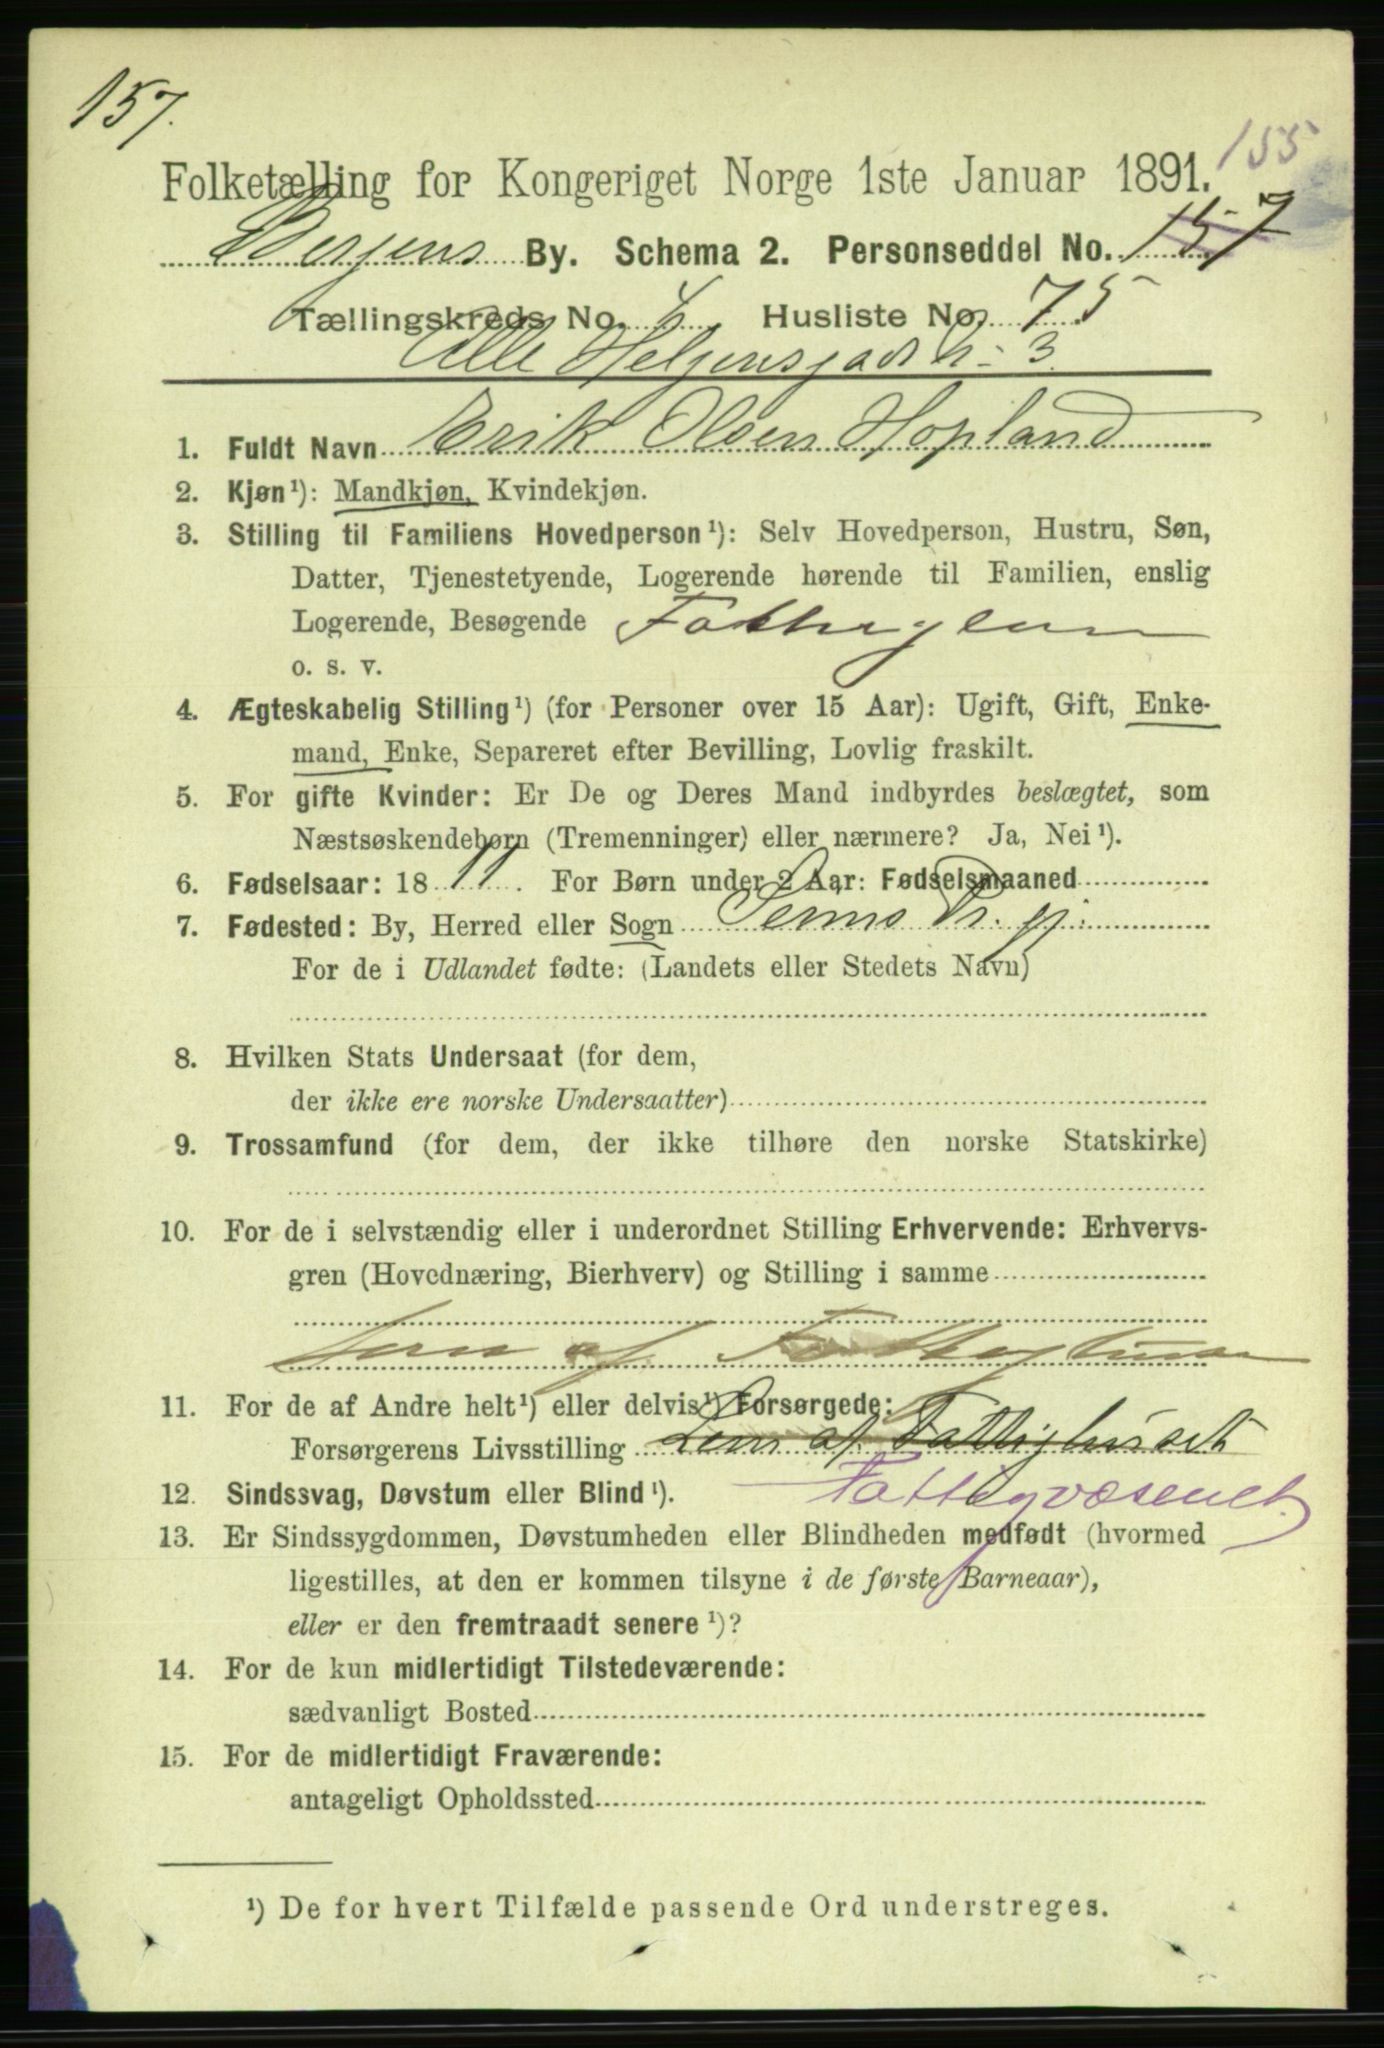 157.
155
Folketælling for Kongeriget Norge 1ste Januar 1891.
Bergens By. Schema 2. Personseddel No. 157
Tællingskreds No. 4 Husliste No. 75
Alle Helgensgad N: 3
1. Fuldt Navn Erik Olsen Hopland
2. Kjøn¹): Mandkjøn, Kvindekjøn.
3. Stilling til Familiens Hovedperson¹): Selv Hovedperson, Hustru, Søn,
Datter, Tjenestetyende, Logerende hørende til Familien, enslig
Logerende, Besøgende Fattiglem
o. s. v.
4. Ægteskabelig Stilling¹) (for Personer over 15 Aar): Ugift, Gift, Enke-
mand, Enke, Separeret efter Bevilling, Lovlig fraskilt.
5. For gifte Kvinder: Er De og Deres Mand indbyrdes beslægtet, som
Næstsøskendebørn (Tremenninger) eller nærmere? Ja, Nei¹).
6. Fødselsaar: 1811. For Børn under 2 Aar: Fødselsmaaned
7. Fødested: By, Herred eller Sogn Pr. gj.
For de i Udlandet fødte: (Landets eller Stedets Navn)
8. Hvilken Stats Undersaat (for dem,
der ikke ere norske Undersaatter)
9. Trossamfund (for dem, der ikke tilhøre den norske Statskirke)
10. For de i selvstændig eller i underordnet Stilling Erhvervende: Erhvervs-
gren (Hovednæring, Bierhverv) og Stilling i samme
af
11. For de af Andre helt¹) eller delvis¹) Forsørgede:
Forsørgerens Livsstilling Lem af Fattighuset
12. Sindssvag, Døvstum eller Blind¹). Fattigvæsenet.
13. Er Sindssygdommen, Døvstumheden eller Blindheden medfødt (hvormed
ligestilles, at den er kommen tilsyne i de første Barneaar),
eller er den fremtraadt senere¹)?
14. For de kun midlertidigt Tilstedeværende:
sædvanligt Bosted
15. For de midlertidigt Fraværende:
antageligt Opholdssted
¹) De for hvert Tilfælde passende Ord understreges.